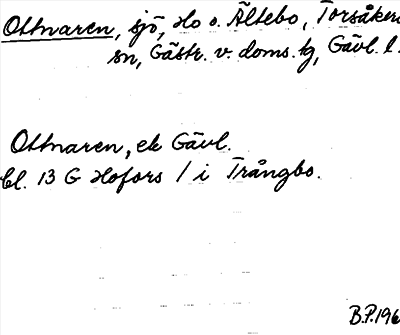 Ottnaren, sjö, Ho o. Ältebo, Torsåkers
sn, Gästr. v. doms. tg, Gävl. l.
Ottnaren, ek Gävl.
bl. 13 G Hofors / i Trångbo.
B.P. 196